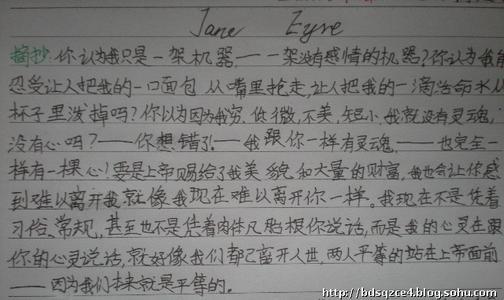 Jane Eyre
摘抄:你认为我只是一架机器——一架没有感情的机器?你认为我能
忍受让人把我的一口面包从嘴里抢走,让人把我的一滴活命水从
杯子里泼掉吗?你以为因为我穷、低微、不美、矮小,我就没有灵魂,
没有心吗?——你想错了!——我跟你一样有灵魂,——也完全一
样有一棵心!要是上帝赐给了我美貌和大量的财富,我也会让你感
到难以离开我就像我现在难以离开你一样。我现在不是凭着
习俗、常规,甚至也不是凭着肉体凡胎跟你说话,而是我的心灵在跟
你的心灵说话,就好像我们都已离开人世,两人平等的站在上帝面前
——因为我们本来就是平等的。
http://bdsqzce4.blog.sohu.com